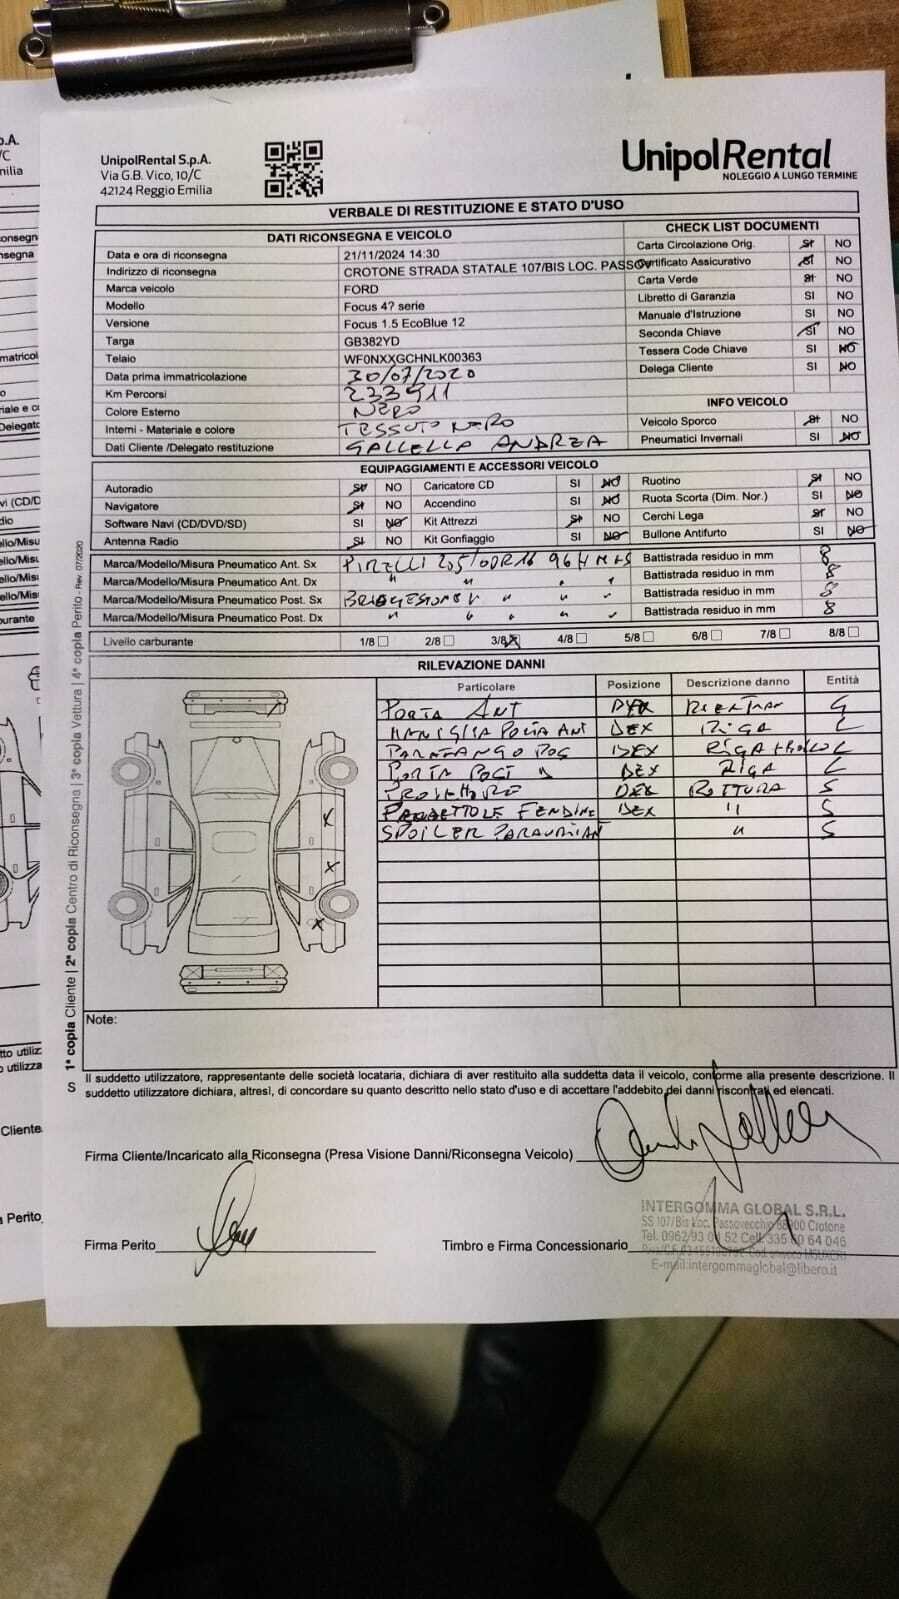 UnipolRental S.p.A.
Via G.B. Vico, 10/C
42124 Reggio Emilia
UnipolRental
NOLEGGIO A LUNGO TERMINE
VERBALE DI RESTITUZIONE E STATO D'USO
DATI RICONSEGNA E VEICOLO
Data e ora di riconsegna 21/11/2024 14:30
Indirizzo di riconsegna CROTONE STRADA STATALE 107/BIS LOC. PASSOV
Marca veicolo FORD
Modello Focus 4? serie
Versione Focus 1.5 EcoBlue 12
Targa GB382YD
Telaio WF0NXXGCHNLK00363
Data prima immatricolazione 30/07/2020
Km Percorsi 233911
Colore Esterno NERO
Interni - Materiale e colore TESSUTO NERO
Dati Cliente /Delegato restituzione GALLELLA ANDREA
CHECK LIST DOCUMENTI
Carta Circolazione Orig. SI NO
Certificato Assicurativo SI NO
Carta Verde SI NO
Libretto di Garanzia SI NO
Manuale d'Istruzione SI NO
Seconda Chiave SI NO
Tessera Code Chiave SI NO
Delega Cliente SI NO
INFO VEICOLO
Veicolo Sporco SI NO
Pneumatici Invernali SI NO
EQUIPAGGIAMENTI E ACCESSORI VEICOLO
Autoradio SI NO Caricatore CD SI NO Ruotino SI NO
Navigatore SI NO Accendino SI NO Ruota Scorta (Dim. Nor.) SI NO
Software Navi (CD/DVD/SD) SI NO Kit Attrezzi SI NO Cerchi Lega SI NO
Antenna Radio SI NO Kit Gonfiaggio SI NO Bullone Antifurto SI NO
Marca/Modello/Misura Pneumatico Ant. Sx PIRELLI Battistrada residuo in mm 8
Marca/Modello/Misura Pneumatico Ant. Dx " " Battistrada residuo in mm 8
Marca/Modello/Misura Pneumatico Post. Sx Battistrada residuo in mm 8
Marca/Modello/Misura Pneumatico Post. Dx " Battistrada residuo in mm 8
Livello carburante 1/8 2/8 3/8 4/8 5/8 6/8 7/8 8/8
RILEVAZIONE DANNI
Particolare Posizione Descrizione danno Entità
PORTA ANT DEX G
MANIGLIA PORTA ANT DEX RIGA L
PARAFANGO POS DEX RIGA L
PORTA POST DEX RIGA L
DEX ROTTURA S
FENDINE DEX " S
SPOILER " S
Note:
Il suddetto utilizzatore, rappresentante delle società locataria, dichiara di aver restituito alla suddetta data il veicolo, conforme alla presente descrizione. Il
suddetto utilizzatore dichiara, altresì, di concordare su quanto descritto nello stato d'uso e di accettare l'addebito dei danni riscontrati ed elencati.
Firma Cliente/Incaricato alla Riconsegna (Presa Visione Danni/Riconsegna Veicolo)
Firma Perito
Timbro e Firma Concessionario
INTERGOMMA GLOBAL S.R.L.
SS 107/Bis Loc. Passovecchio 88900 Crotone
E-mail:intergommaglobal@libero.it
1ª copia Cliente | 2ª copia Centro di Riconsegna | 3ª copia Vettura | 4ª copia Perito - Rev. 07/2020
S